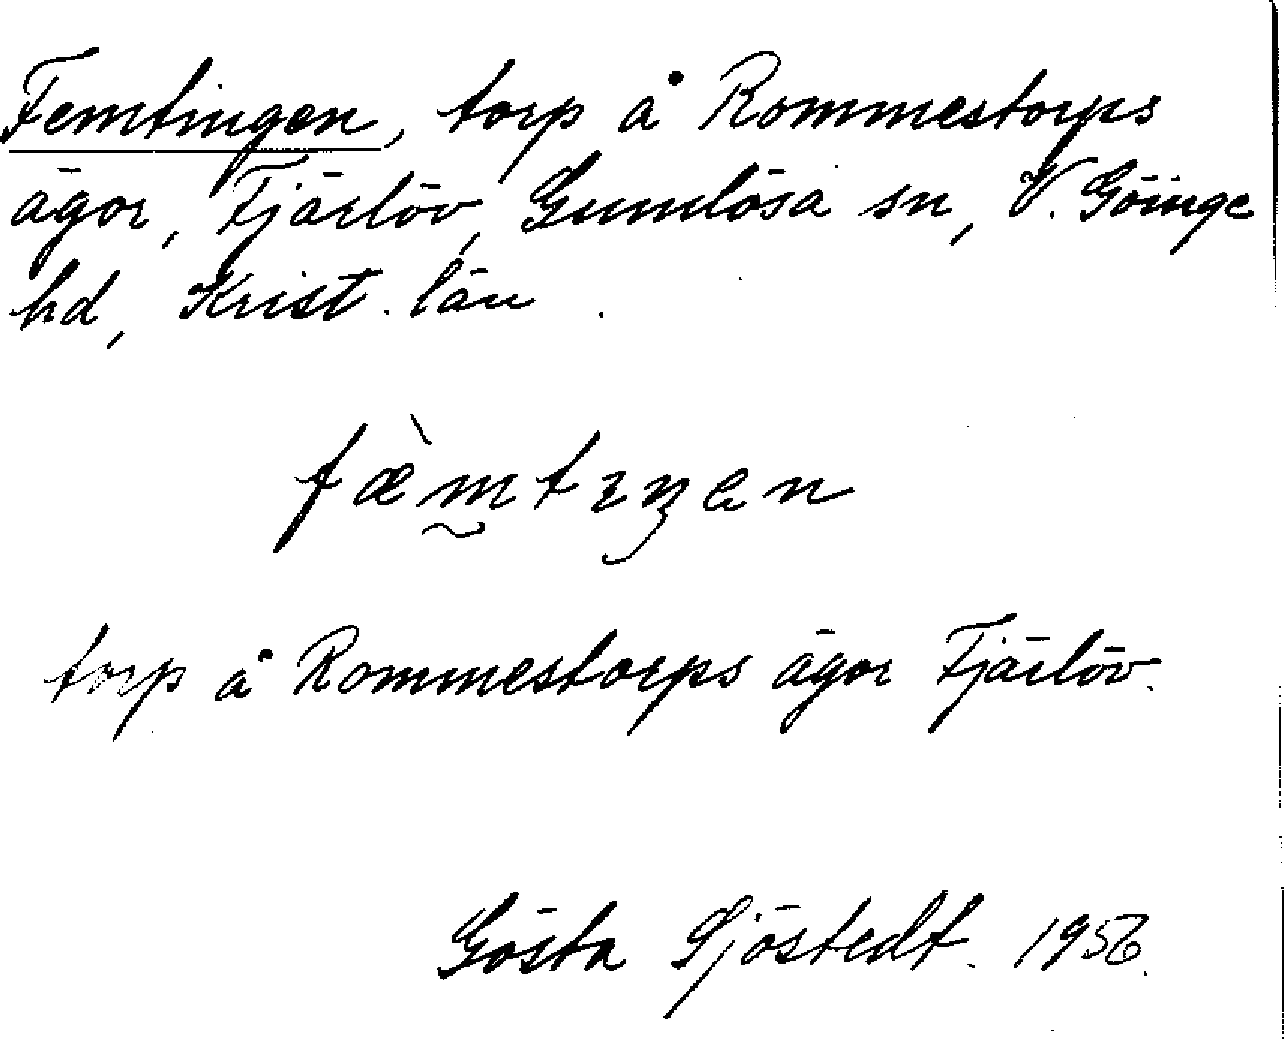 Femtingen, torp å Rommestorps
ägor, Fjärlöv, Gumlösa sn, V. Göinge
hd, Krist. län.
fæ̀mtıŋen
torp å Rommestorps ägor Fjärlöv.
Gösta Sjöstedt. 1956.